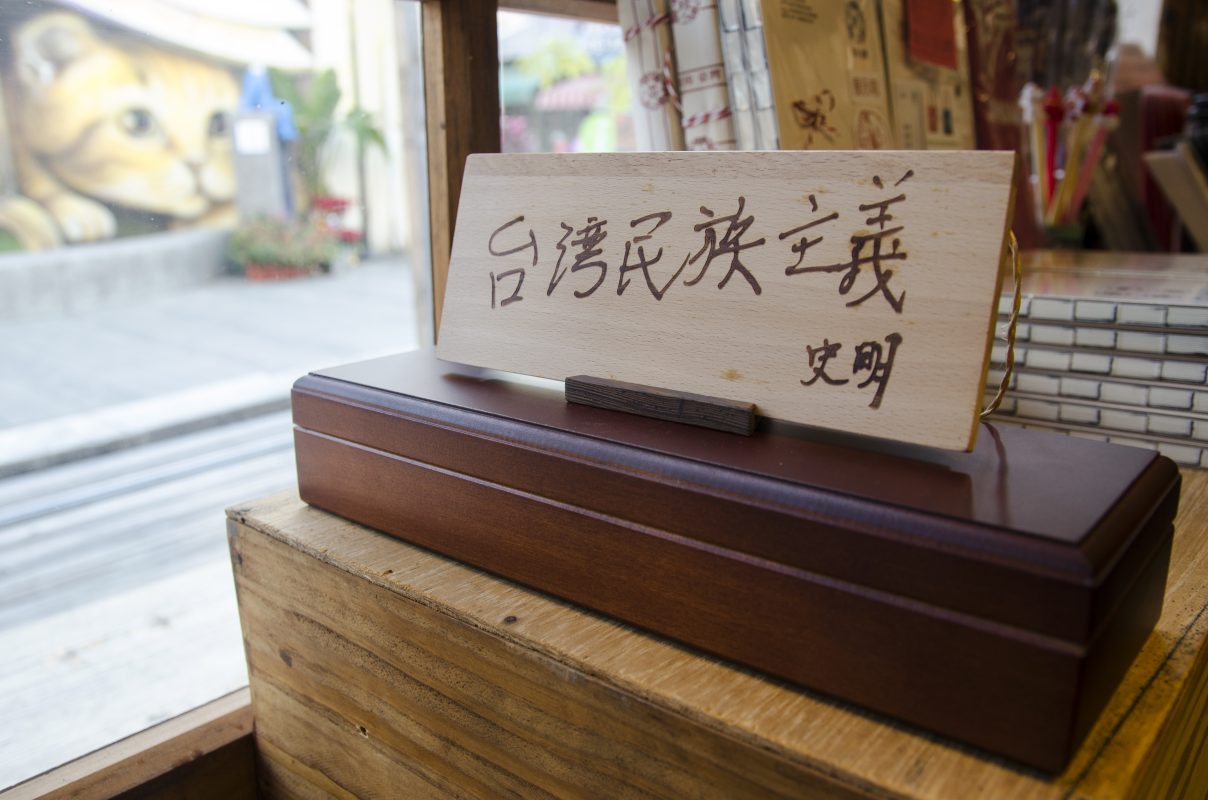 台湾民族主義
史明